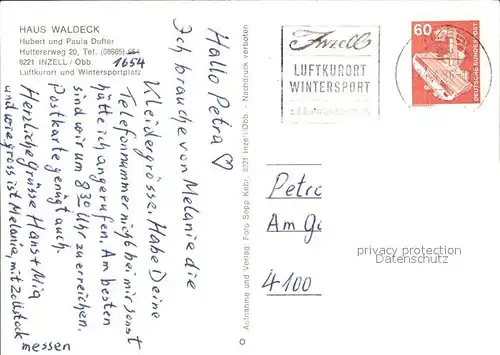 HAUS WALDECK
Hubert und Paula Dufter
Huttererweg 20, Tel. (08665)
1654
8221 INZELL / Obb.
Luftkurort und Wintersportplatz
Hallo Petra ♡
Ich brauche von Melanie die
Kleidergrösse. Habe Deine
Telefonnummer nicht bei mir sonst
hätte ich angerufen. Am besten
sind wir um 8 30 Uhr zu erreichen.
Postkarte genügt auch.
Herzliche Grüsse Hans + Mia
und wie gross ist Melanie, mit Zollstock
messen
Aufnahme und Verlag: Foto Sepp Kehr, 8221 Inzell/Obb. - Nachdruck verboten
Inzell
LUFTKURORT
WINTERSPORT
60
DEUTSCHE BUNDESPOST
Petra
Am
4100
privacy protection
Datenschutz